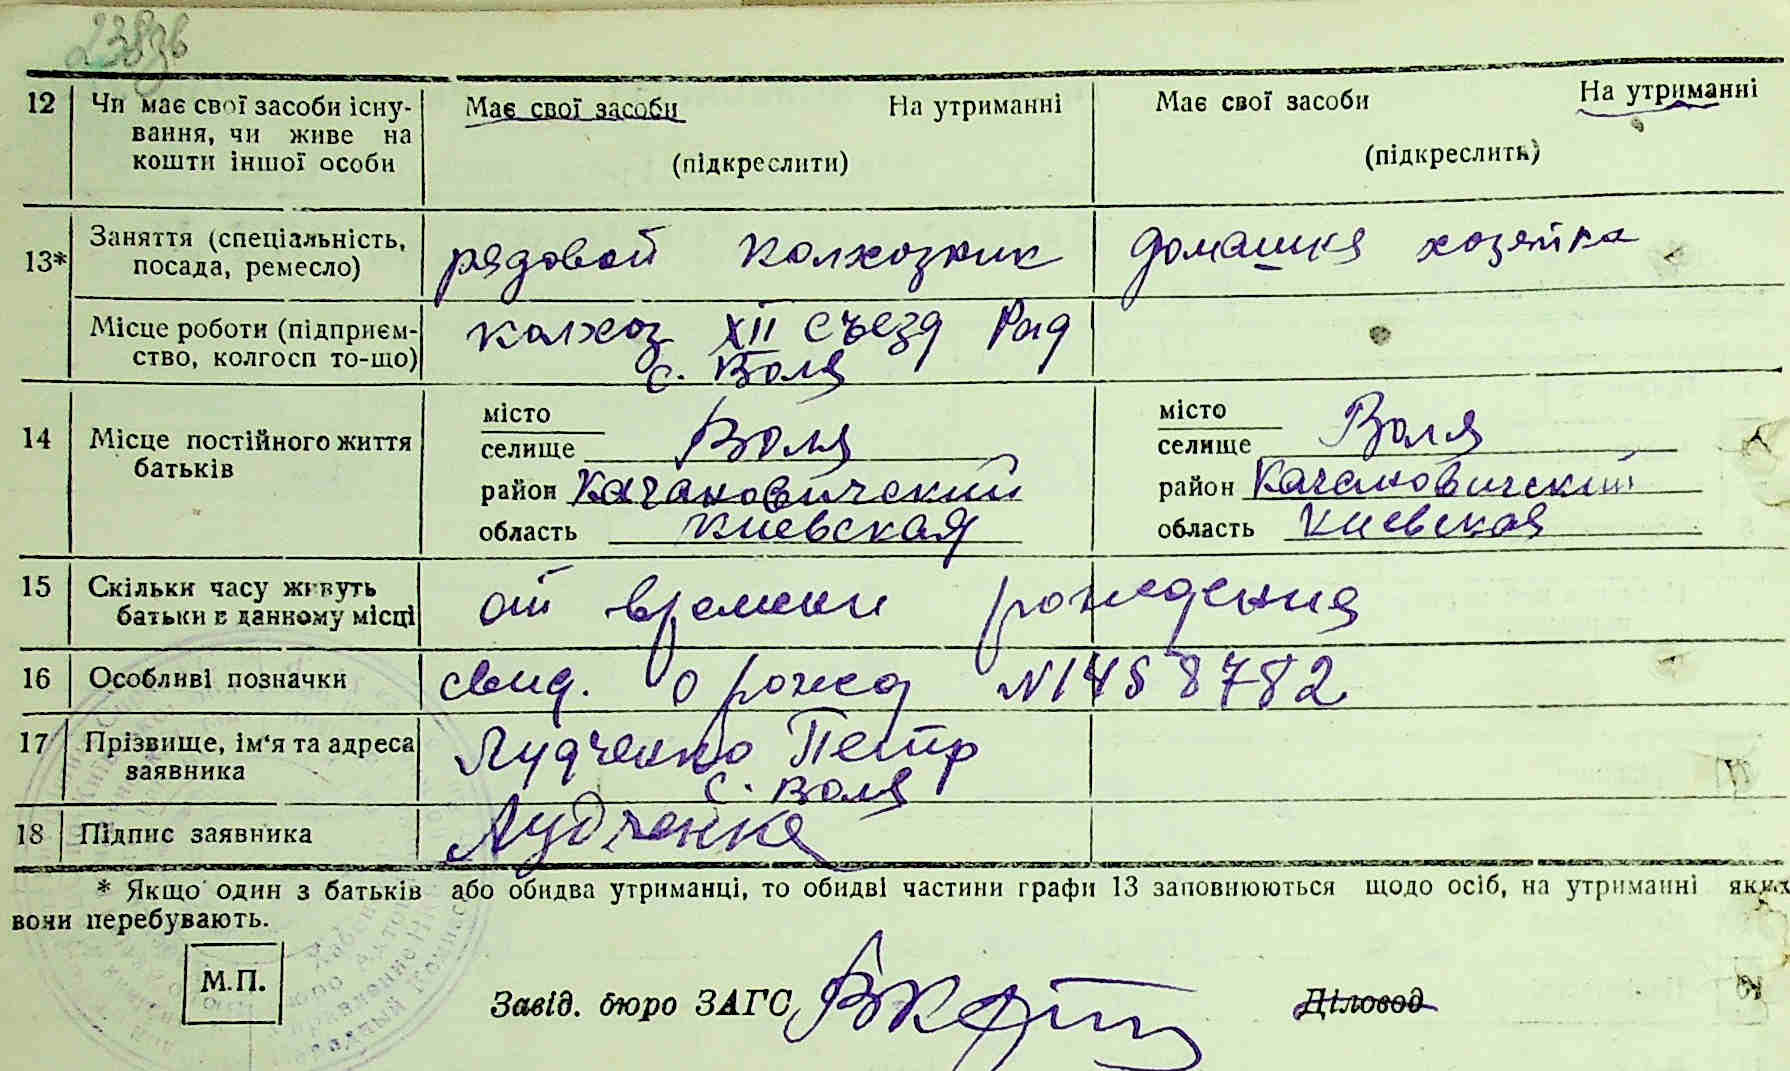 12 Чи має свої засоби існу- Має свої засоби На утриманні Має свої засоби На утриманні
вання, чи живе на
кошти іншої особи (підкреслити) (підкреслить)
13* Заняття (спеціальність, рядовой колхозник домашня хозяйка
посада, ремесло)
Місце роботи (підприєм- колхоз XII съезд Рад
ство, колгосп то-що) с. Воля
14 Місце постійного життя
батьків
місто місто
селище Воля селище Воля
район Качановический район Качановический
область Киевская область Киевская
15 Скільки часу живуть от времени рождения
батьки в данному місці
16 Особливі позначки свид. о рожд N1458782
17 Прізвище, ім'я та адреса Лудченко Петр
заявника с. Воля
18 Підпис заявника Лудченко
* Якщо один з батьків або обидва утриманці, то обидві частини графи 13 заповнюються щодо осіб, на утриманні яких
вони перебувають.
М.П. Завід. бюро ЗАГС Діловод